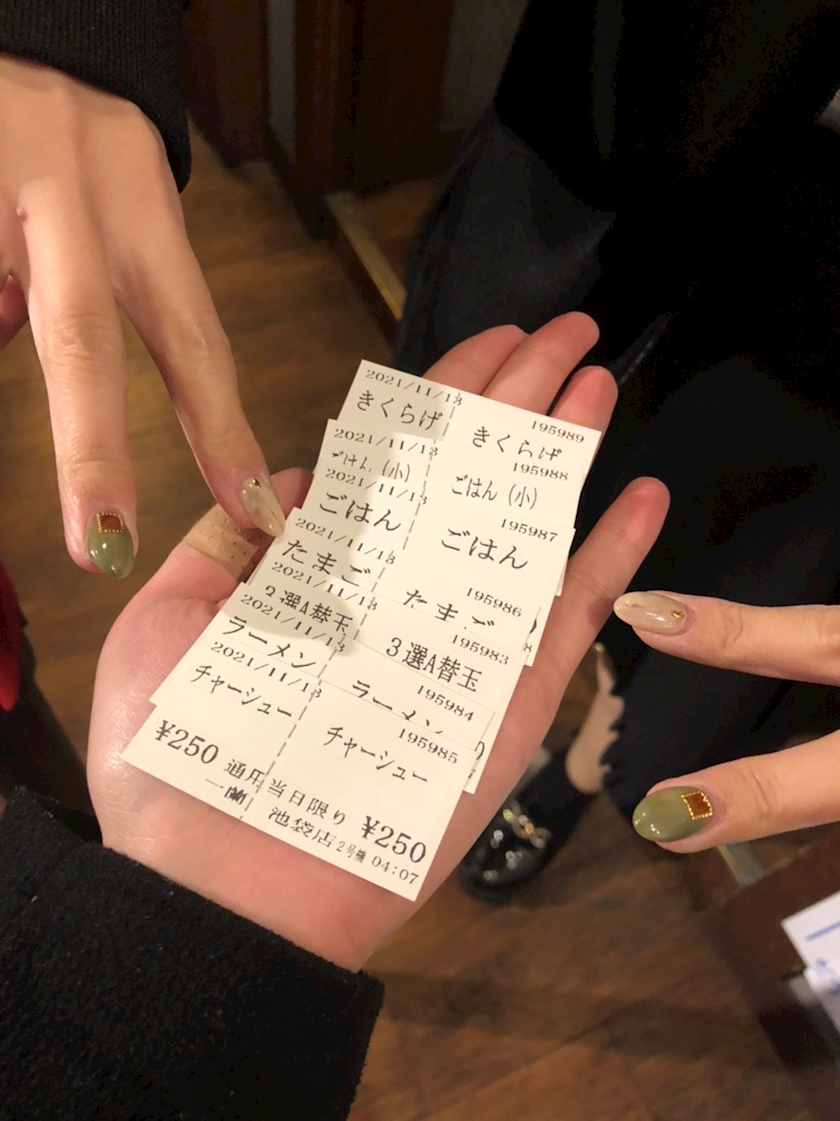 2021/11/13
きくらげ
195989
きくらげ
2021/11/13
ごはん(小)
195988
ごはん(小)
2021/11/13
ごはん
195987
ごはん
2021/11/13
たまご
195986
たまご
2021/11/13
3選A替玉
195983
3選A替玉
2021/11/13
ラーメン
195984
ラーメン
2021/11/13
チャーシュー
195985
チャーシュー
¥250
一蘭
当日限り ¥250
池袋店 2号機 04:07